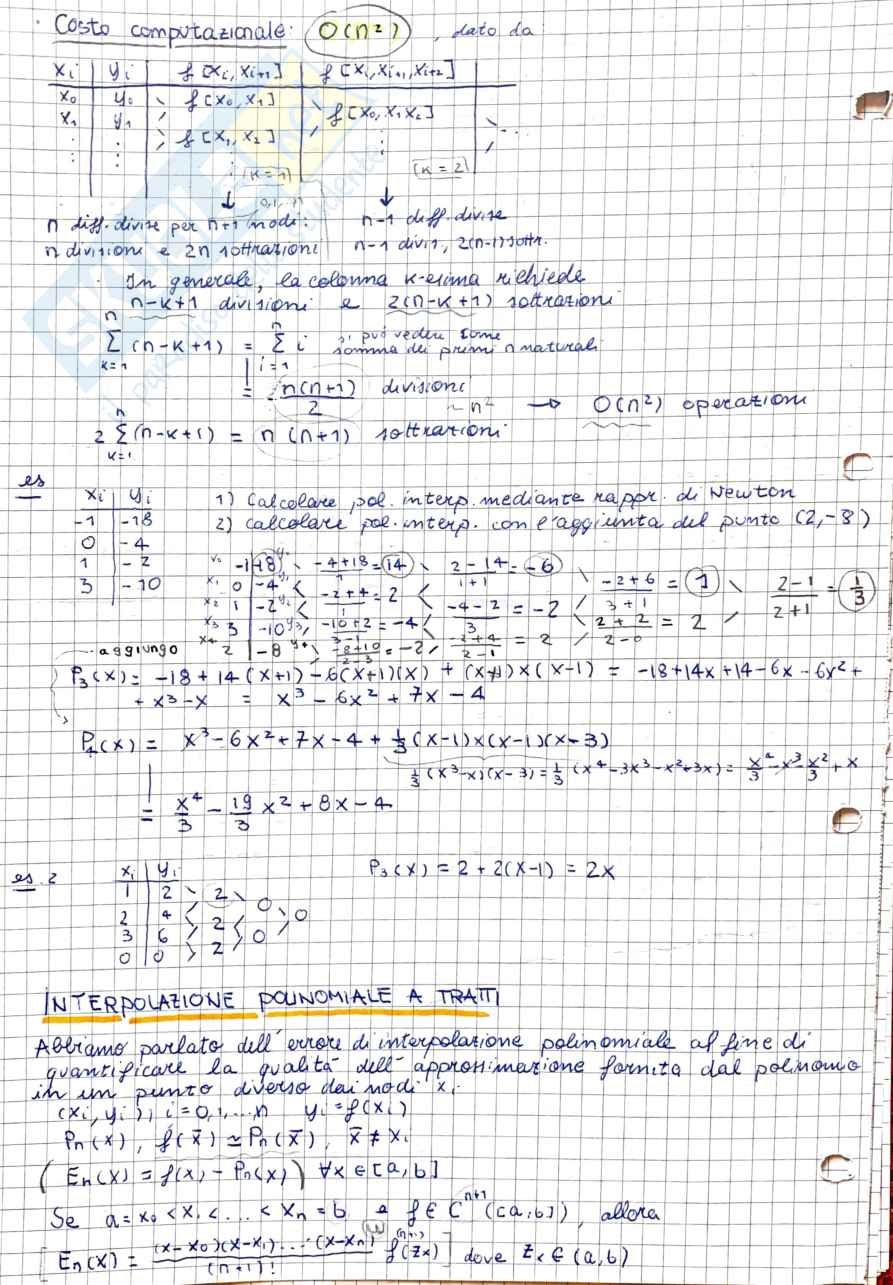 · Costo computazionale: O(n²), dato da
xi | yi | f[xi, xi+1] | f[xi, xi+1, xi+2]
x0 y0 f[x0, x1]
x1 y1 f[x0, x1 x2]
f[x1, x2] ...
(k=1) (k=2)
0,1,..n
n diff. divise per n+1 nodi: n-1 diff. divise
n divisioni e 2n sottrazioni n-1 divis, 2(n-1) sottr.
· In generale, la colonna k-esima richiede
n-k+1 divisioni e 2(n-k+1) sottrazioni
n∑k=1 (n-k+1) = n∑i=1 i si può vedere come somma dei primi n naturali
= n(n+1)/2 divisioni
~n² → O(n²) operazioni
2 n∑k=1 (n-k+1) = n(n+1) sottrazioni
es
xi | yi 1) Calcolare pol. interp. mediante rappr. di Newton
-1 | -18 2) calcolare pol. interp. con l'aggiunta del punto (2,-8)
0 | -4
1 | -2
3 | -10
x0 -1 -18 y0 -4+18/1 = 14 2-14/1+1 = -6 -2+6/3+1 = 1 2-1/2+1 = 1/3
x1 0 -4 y1 -2+4/1 = 2 -4-2/3 = -2 2+2/2-0 = 2
x2 1 -2 y2 -10+2/3-1 = -4 -2+4/2-1 = 2
x3 3 -10 y3 -8+10/2-3 = -2
aggiungo x4 2 -8 y4
P3(x) = -18 + 14(x+1) - 6(x+1)(x) + (x+1)x(x-1) = -18+14x+14-6x-6x²+
+x³-x = x³-6x²+7x-4
P4(x) = x³-6x²+7x-4 + 1/3(x-1)x(x-1)(x-3)
1/3(x³-x)(x-3) = 1/3(x⁴-3x³-x²+3x) = x⁴/3 - x³ - x²/3 + x
= x⁴/3 - 19/3 x² + 8x - 4
es. 2
xi | yi P3(x) = 2 + 2(x-1) = 2x
1 | 2 2 0 0
2 | 4 2 0
3 | 6 2
0 | 0
INTERPOLAZIONE POLINOMIALE A TRATTI
Abbiamo parlato dell'errore di interpolazione polinomiale al fine di
quantificare la qualità dell'approssimazione fornita dal polinomo
in un punto diverso dai nodi xi
(xi, yi), i=0,1,...n yi = f(xi)
Pn(x), f(x̄) ≃ Pn(x̄), x̄ ≠ xi
(En(x) = f(x) - Pn(x)) ∀x ∈ [a,b]
Se a = x0 < x1 < ... < xn = b e f ∈ Cⁿ⁺¹([a,b]), allora
[En(x) = (x-x0)(x-x1)...(x-xn)/(n+1)! f⁽ⁿ⁺¹⁾(zx)] dove zx ∈ (a,b)